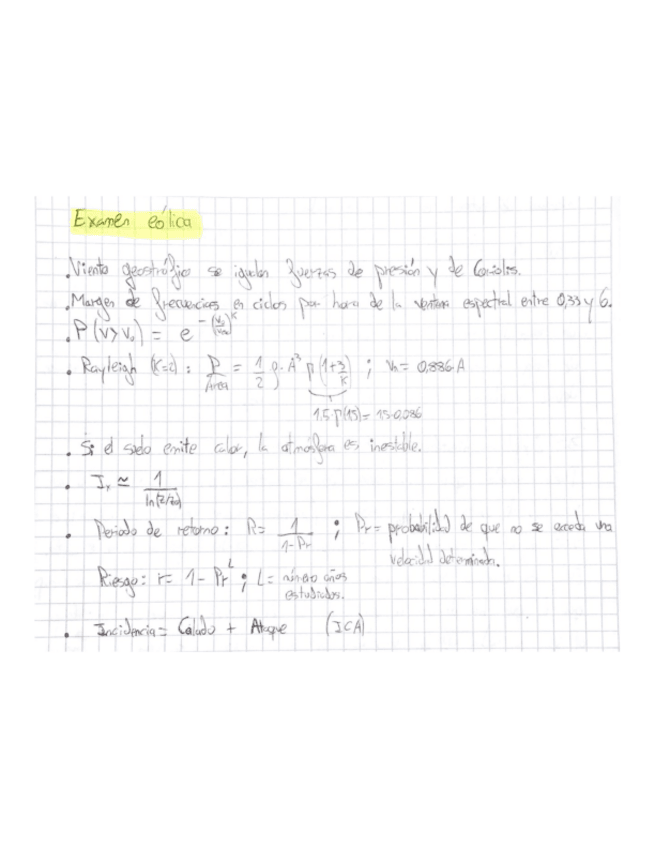 Examen eólica
. Viento geostrófico se igualan fuerzas de presión y de Coriolis.
. Margen de frecuencias en ciclos por hora de la ventana espectral entre 0,33 y 6.
. P(v>v₀) = e^-(v₀/)^K
. Rayleigh (K=2): P/Area = 1/2 ρ·A³ Γ(1+3/K) ; Vm = 0,886·A
1.5·Γ(1.5) = 1.5·0,886
. Si el suelo emite calor, la atmósfera es inestable.
. Iₓ ≃ 1/ln(z/z₀)
. Periodo de retorno: R = 1/(1-Pr) ; Pr = probabilidad de que no se exceda una
velocidad determinada.
Riesgo: r = 1 - Pr^L ; L = número años
estudiados.
. Incidencia = Calado + Ataque (ICA)